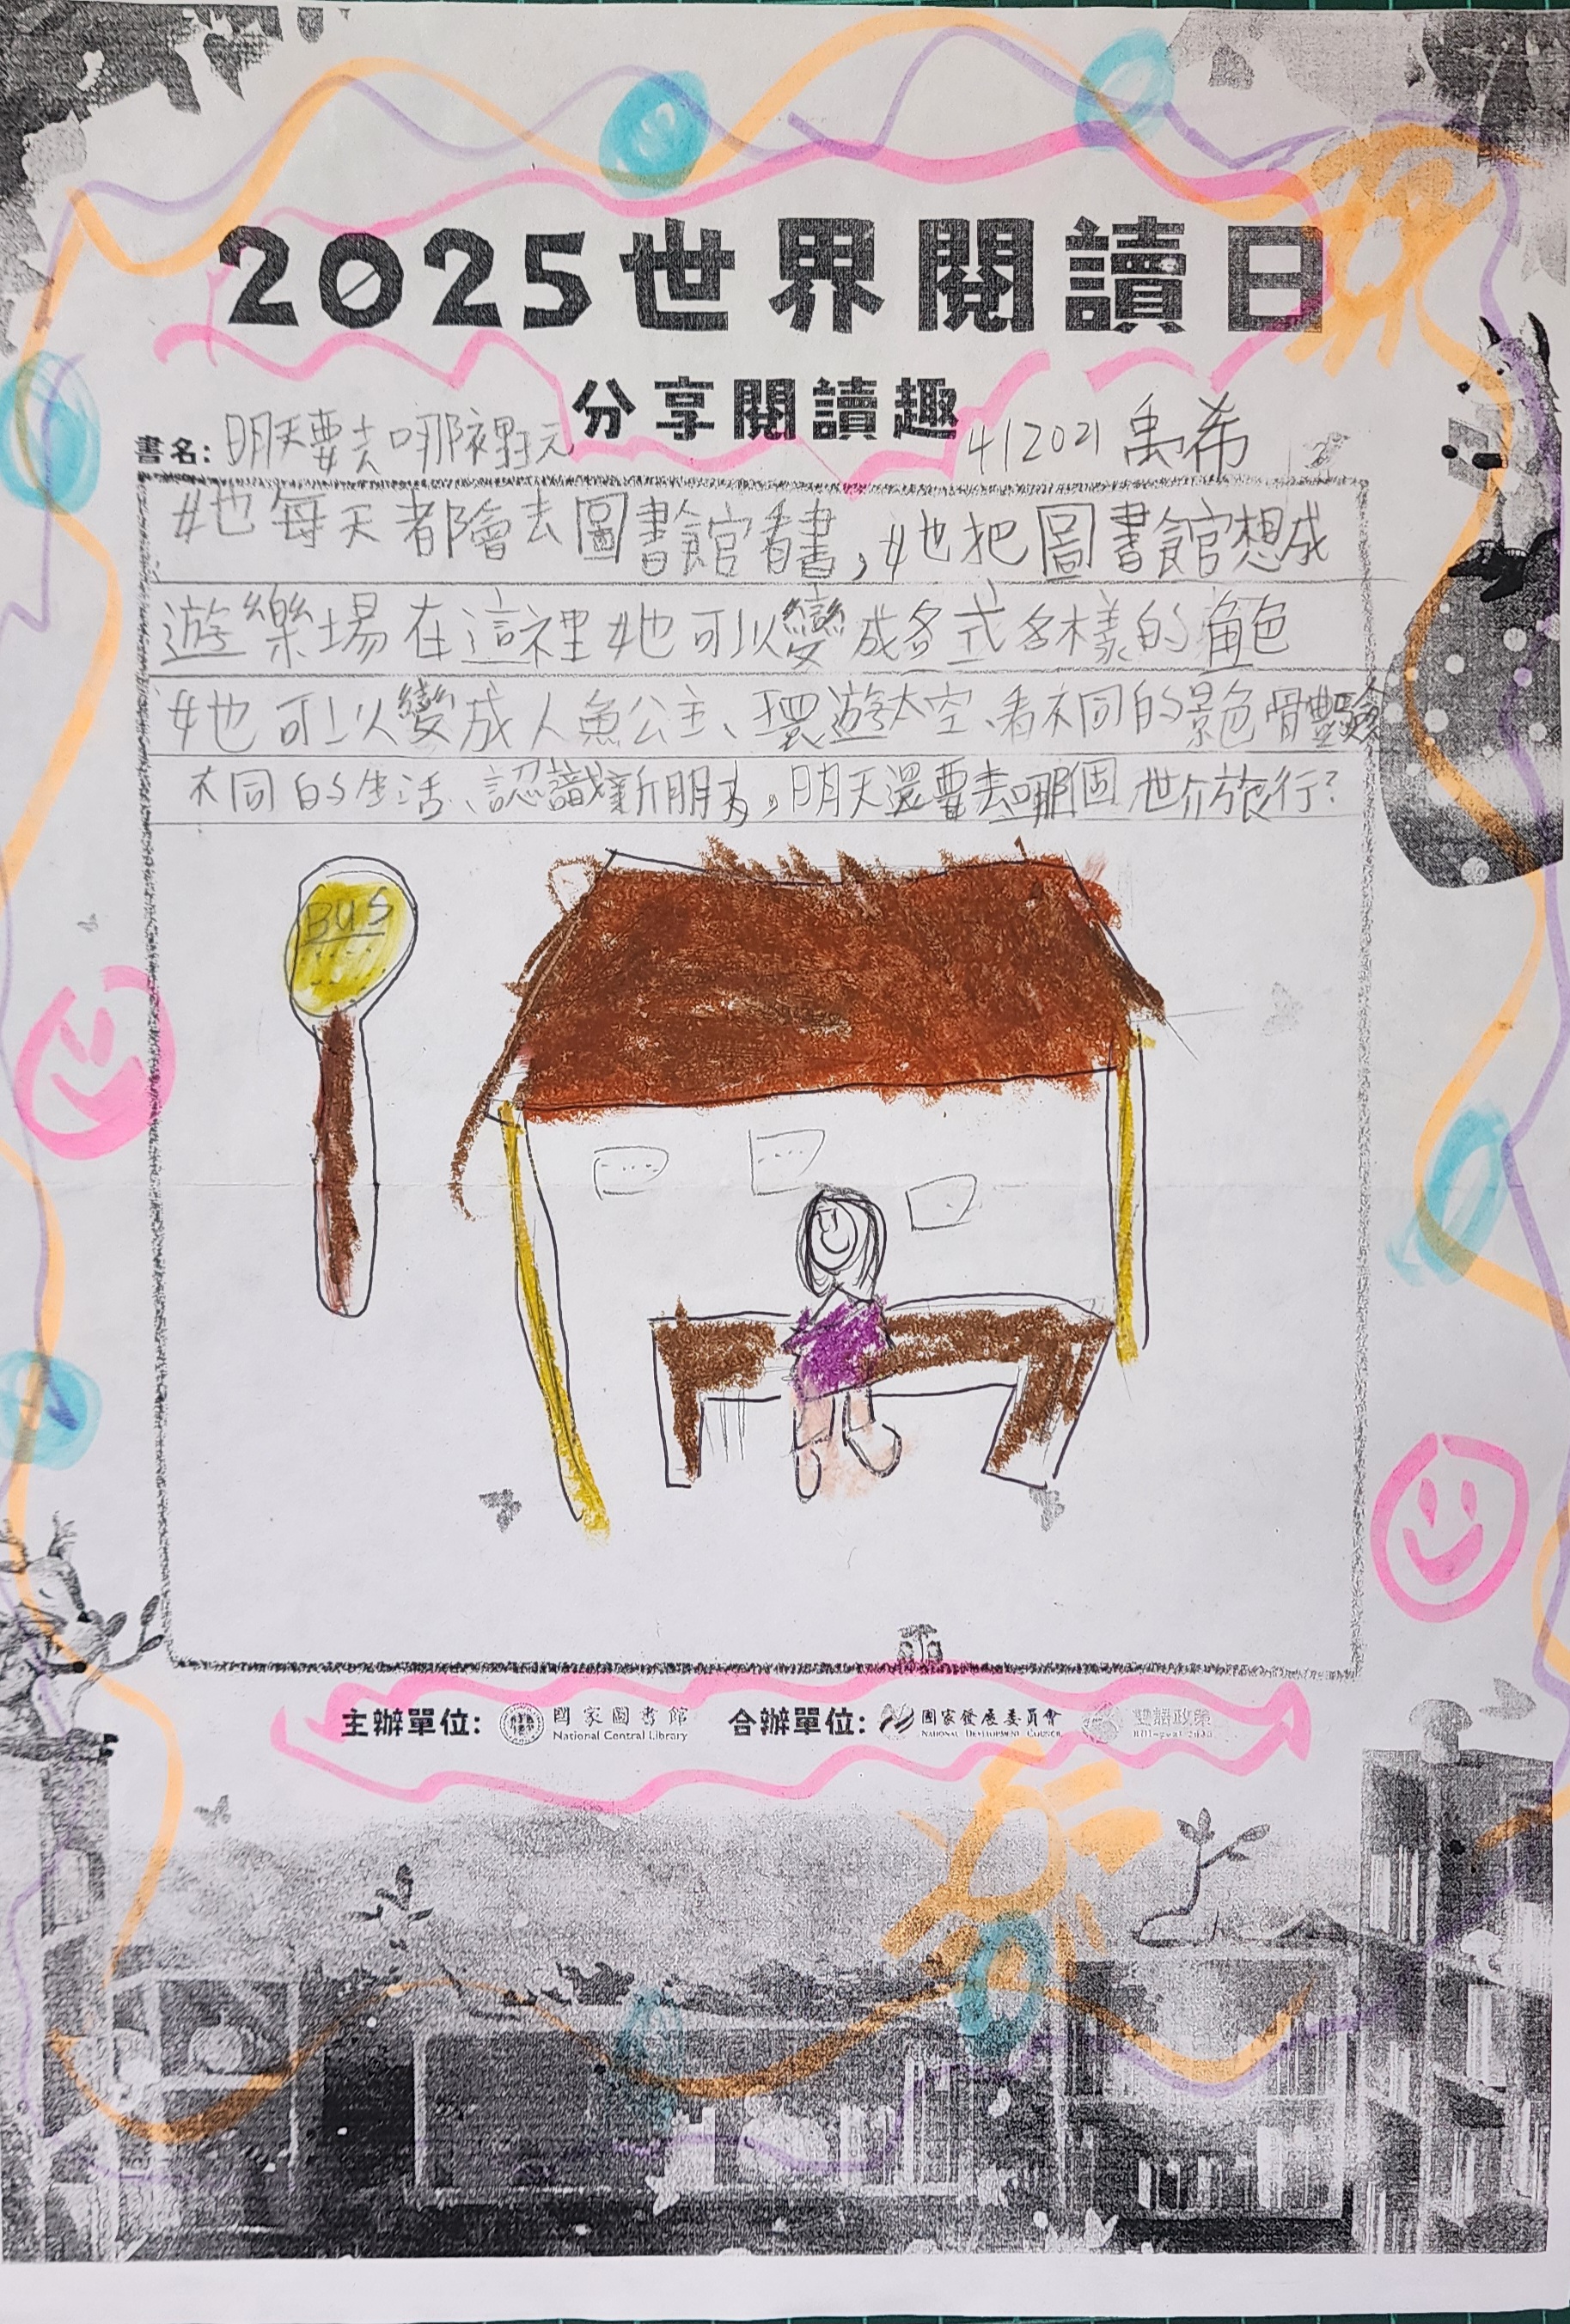 2025世界閱讀日
分享閱讀趣
書名: 明天要去哪裡玩 412021 禹希
她每天都會去圖書館看書,她把圖書館想成
遊樂場在這裡她可以變成各式各樣的角色
她可以變成人魚公主、環遊太空、看不同的景色體驗
不同的生活、認識新朋友,明天還要去哪個世界旅行?
BUS
主辦單位: 國家圖書館 National Central Library 合辦單位: 國家發展委員會 National Development Council 雙語政策